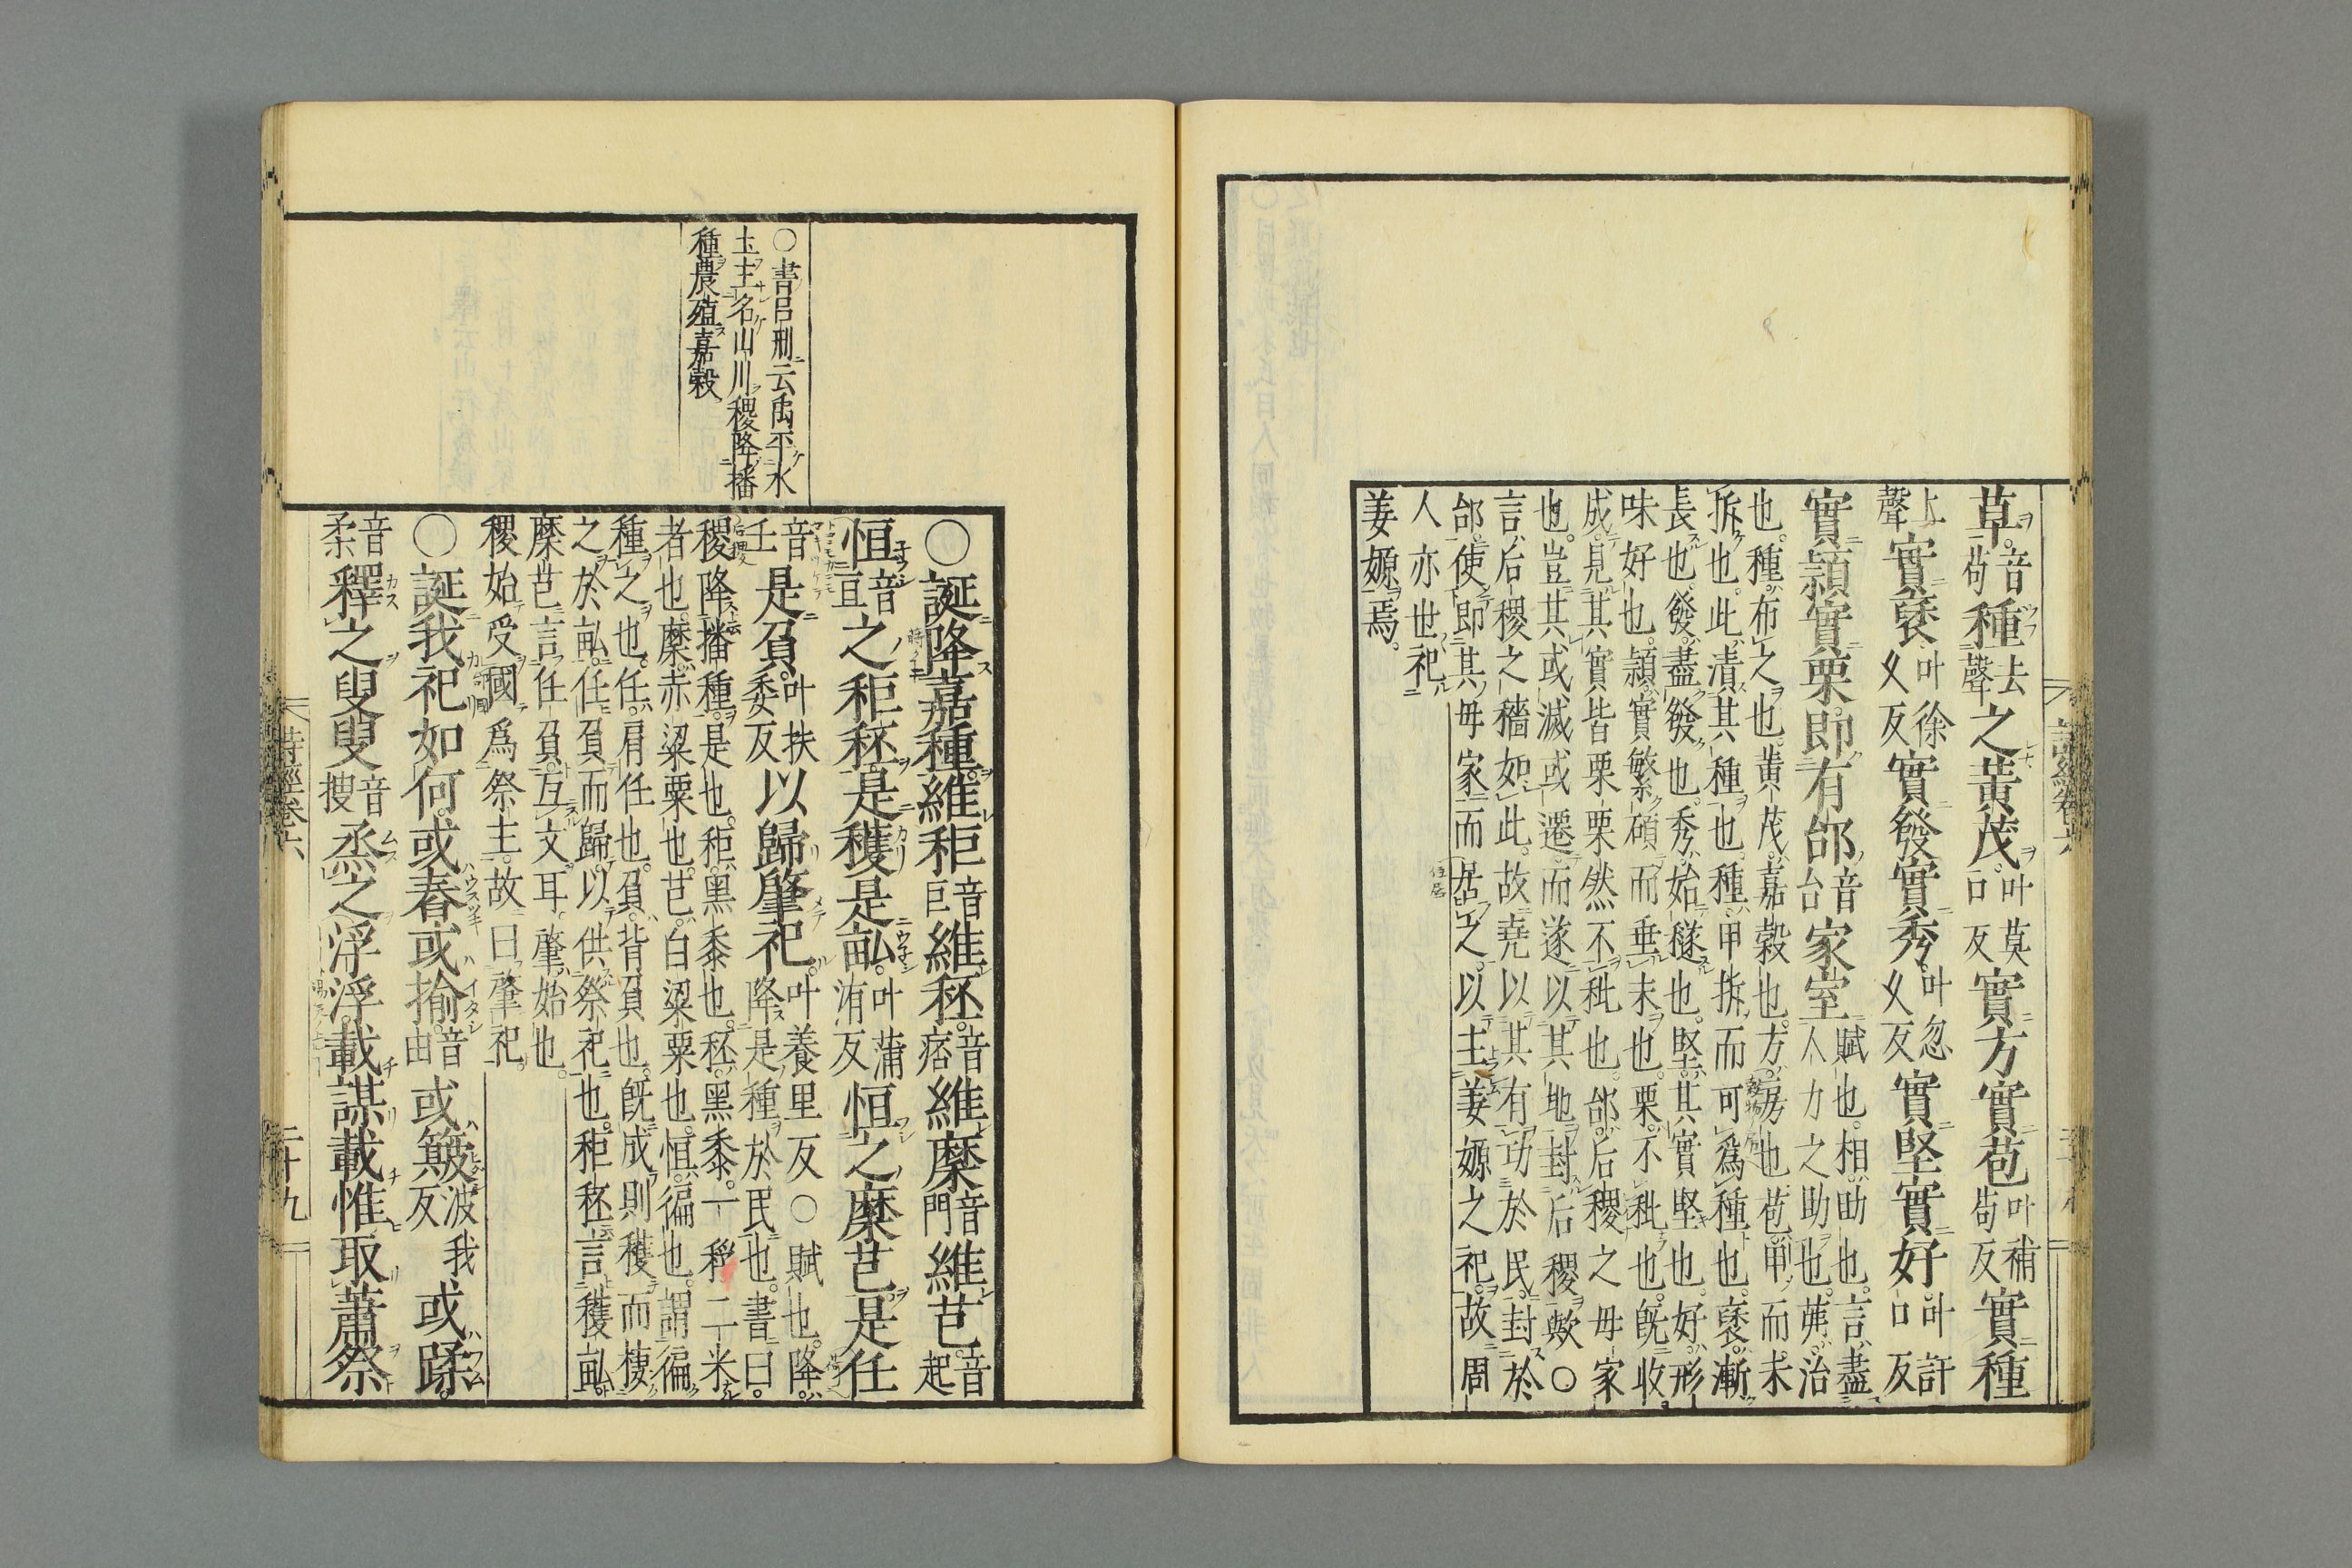 草。音苟種去聲之黃茂。叶莫口反實方實苞叶補苟反實種
上聲實褎叶徐乂反實發實秀。叶忽乂反實堅實好。叶許口反
實穎實栗。即有邰音台家室賦也。相助也。言盡人力之助也。茀治
也。種布之也。黃茂。嘉穀也。方房也。苞甲而未
拆也。此漬其種也。種甲拆而可爲種也。褎漸
長也。發盡發也。秀始穟也。堅其實堅也。好形
味好也。穎實繁碩而垂末也。栗不秕也。旣收
成。見其實皆栗栗然不秕也。邰后稷之母家
也。豈其或滅或遷而遂以其地封后稷歟○
言后稷之穡如此。故堯以其有功於民。封於
邰。使即其母家而居之。以主姜嫄之祀。故周
人亦世祀
姜嫄焉。
○書呂刑云禹平水
土主名山川稷降播
種農殖嘉穀
○誕降嘉種維秬音巨維秠。音痞維穈音門維芑。音起
恒音亘之秬秠是穫是畝。叶蒲洧反恒之穈芑。是任
音壬是負。叶扶委反以歸肇祀。叶養里反○賦也。降降是種於民也。書曰。
稷降播種。是也。秬黑黍也。秠黑黍一稃二米
者也。穈赤粱粟也。芑白粱粟也。恒徧也。謂徧
種之也。任肩任也。負背負也。旣成則穫而棲
之於畝。任負而歸。以供祭祀也。秬秠言穫畝
穈芑言任負互文耳。肇始也。
稷始受國爲祭主。故曰肇祀
○誕我祀如何。或舂或揄。音由或簸波我反或蹂。
音柔釋之叟叟音搜烝之浮浮載謀載惟取蕭祭
詩經卷六
二十九